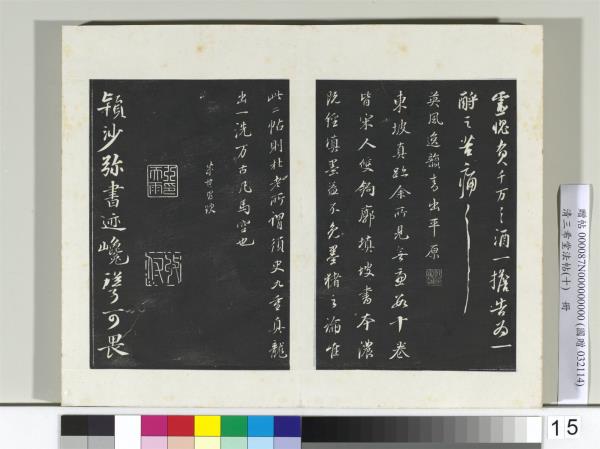 靈愧負千万々酒一擔告為一
酹之苦痛々
英風逸韻高出平原
東坡真跡余所見無慮數十卷
皆宋人雙鉤廓填坡書本濃
既經填墨益不免墨豬之論唯
此二帖則杜老所謂須臾九重真龍
出一洗万古凡馬空也
米芾
頴沙弥書迹巉
可畏
贈帖 000087N000000000 (國贈 032114)
清三希堂法帖(十) 冊
15